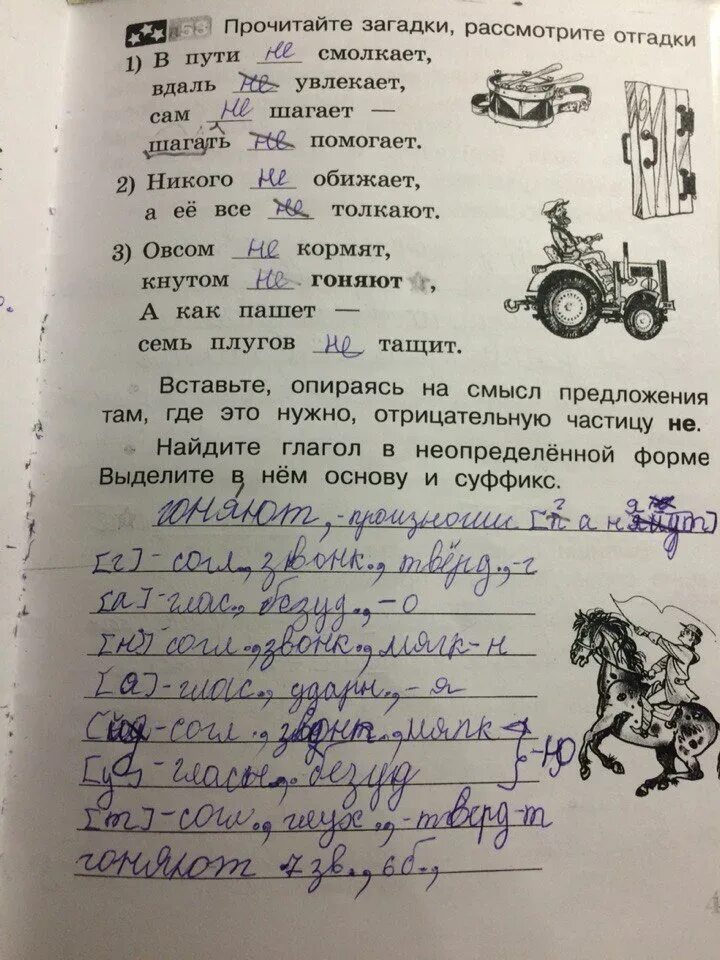 53 Прочитайте загадки, рассмотрите отгадки
1) В пути не смолкает,
вдаль не увлекает,
сам не шагает —
шагать не помогает.
2) Никого не обижает,
а её все не толкают.
3) Овсом не кормят,
кнутом не гоняют,
А как пашет —
семь плугов не тащит.
Вставьте, опираясь на смысл предложения
там, где это нужно, отрицательную частицу не.
Найдите глагол в неопределённой форме
Выделите в нём основу и суффикс.
гоняют, -произносим
[г]-согл., звонк., твёрд.,-г
[а]-глас., безуд.,-о
[н]-согл., звонк., мягк-н
[а]-глас., ударн.,-я
-согл., звонк., мягк
[у]-гласн., безуд -ю
[т]-согл., глух.,-тверд-т
гоняют 7 зв., 6 б.,